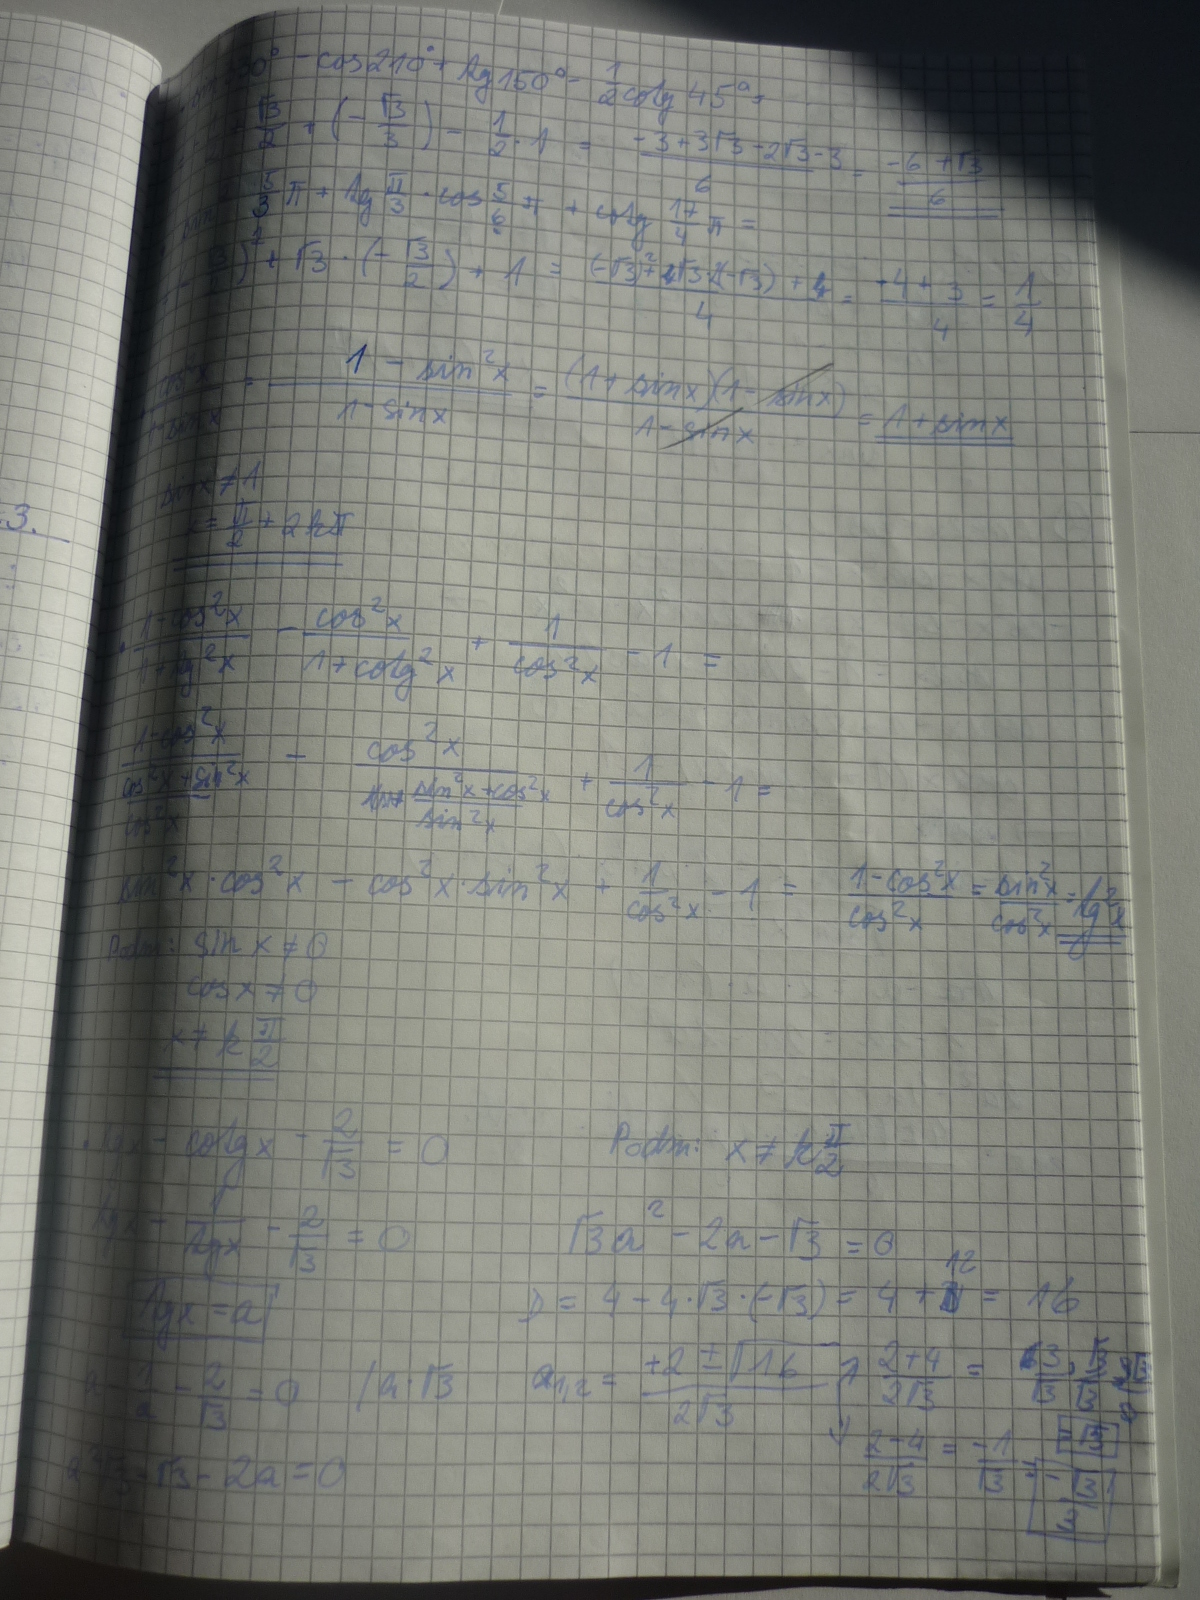 30° - cos210° + tg150° - 1/2 cotg 45° =
√3/2 + (-√3/3) - 1/2 · 1 = (-3+3√3-2√3-3)/6 = (-6+√3)/6
5/3 π + tg π/3 · cos 5/6 π + cotg 17/4 π =
)² + √3 · (-√3/2) + 1 = = (-4+3)/4 = 1/4
cos²x/(1-sinx) = (1 - sin²x)/(1-sinx) = (1+sinx)(1-sinx)/(1-sinx) = 1+sinx
sinx≠1
= π/2 + 2kπ
3.
(1-cos²x)/(1+tg²x) - cos²x/(1+cotg²x) + 1/cos²x - 1 =
(1-cos²x)/((cos²x+sin²x)/cos²x) - cos²x/((sin²x+cos²x)/sin²x) + 1/cos²x - 1 =
sin²x · cos²x - cos²x · sin²x + 1/cos²x - 1 = (1-cos²x)/cos²x = sin²x/cos²x = tg²x
Podm: sin x ≠ 0
cos x ≠ 0
x ≠ k π/2
tgx - cotgx - 2/√3 = 0 Podm: x ≠ k π/2
tgx - 1/tgx - 2/√3 = 0 √3a² - 2a - √3 = 0
tgx = a D = 4 - 4·√3·(-√3) = 4 + 12 = 16
a - 1/a - 2/√3 = 0 /a·√3 a1,2 = (+2 ± √16)/(2√3) (2+4)/(2√3) = 3/√3 · √3/√3 = 3√3/3 = √3
a²√3 - √3 - 2a = 0 (2-4)/(2√3) = -1/√3 = -√3/3